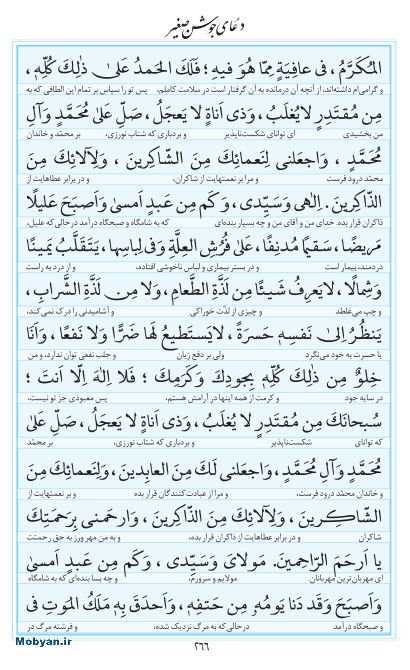 دعای جوشن صغیر
الْمُکَرَّمُ ، فی عافِیَةٍ مِمّا هُوَ فیهِ ؛ فَلَکَ الْحَمدُ عَلیٰ ذٰلِکَ کُلِّهِ ،
و گرامی‌ام داشته‌اند، از آنچه آن درمانده به آن گرفتار است در سلامت کاملم، پس تو را سپاس بر تمام این الطافی که به
مِن مُقتَدِرٍ لایُغلَبُ ، وَذی اَناةٍ لا یَعجَلُ ، صَلِّ عَلیٰ مُحَمَّدٍ وَآلِ
من بخشیدی ای توانای شکست‌ناپذیر و بردباری که شتاب نورزی، بر محمّد و خاندان
مُحَمَّدٍ ، وَاجعَلنی لِنَعمائِکَ مِنَ الشّاکِرینَ ، وَلِآلائِکَ مِنَ
محمّد درود فرست و مرا بر نعمتهایت از شاکران، و در برابر عطاهایت از
الذّاکِرینَ . اِلٰهی وَسَیِّدی ، وَکَم مِن عَبدٍ اَمسیٰ وَاَصبَحَ عَلیلًا
ذاکران قرار بده. خدای من و آقای من و چه بسیار بنده‌ای که به شامگاه و صبحگاه درآمد درحالی‌که علیل،
مَریضًا ، سَقیمًا مُدنِفًا ، عَلیٰ فُرُشِ العِلَّةِ وَفی لِباسِها ، یَتَقَلَّبُ یَمینًا
دردمند، بیمار است و در بستر بیماری و لباس ناخوشی افتاده، و از درد به راست
وَشِمالًا ، لایَعرِفُ شَیئًا مِن لَذَّةِ الطَّعامِ ، وَلا مِن لَذَّةِ الشَّرابِ ،
و چپ می‌غلطد و چیزی از لذّت خوراکی و آشامیدنی را درک نمی‌کند،
یَنظُرُ اِلیٰ نَفسِهِ حَسرَةً ، لایَستَطیعُ لَها ضَرًّا وَلا نَفعًا ، وَاَنَا
با حسرت به خود می‌نگرد ولی بر دفع زیان و جلب نفعی توان ندارد، و من
خِلوٌ مِن ذٰلِکَ کُلِّهِ بِجودِکَ وَکَرَمِکَ ؛ فَلا اِلٰهَ اِلّا اَنتَ ؛
در سایه جود و کرمت از همه اینها در آرامش هستم، پس معبودی جز تو نیست،
سُبحانَکَ مِن مُقتَدِرٍ لا یُغلَبُ ، وَذی اَناةٍ لا یَعجَلُ ، صَلِّ عَلیٰ
که توانای شکست‌ناپذیر و بردباری که شتاب نورزی، بر محمّد
مُحَمَّدٍ وَآلِ مُحَمَّدٍ ، وَاجعَلنی لَکَ مِنَ العابِدینَ ، وَلِنَعمائِکَ مِنَ
و خاندان محمّد درود فرست، و مرا از عبادت‌کنندگان قرار بده و بر نعمتهایت از
الشّاکِرینَ ، وَلِآلائِکَ مِنَ الذّاکِرینَ ، وَارحَمنی بِرَحمَتِکَ
شاکران و در برابر عطاهایت از ذاکران قرار بده، و به من مهر ورز به حق رحمتت
یا اَرحَمَ الرّاحِمینَ. مَولایَ وَسَیِّدی ، وَکَم مِن عَبدٍ اَمسیٰ
ای مهربان‌ترین مهربانان. مولایم و سرورم، و چه بسا بنده‌ای که به شامگاه
وَاَصبَحَ وَقَد دَنا یَومُهُ مِن حَتفِهِ ، وَاَحدَقَ بِهِ مَلَکُ المَوتِ فی
و صبحگاه درآمد درحالی‌که به مرگ نزدیک شده، و فرشته مرگ در
۲۶۶
Mobyan.ir